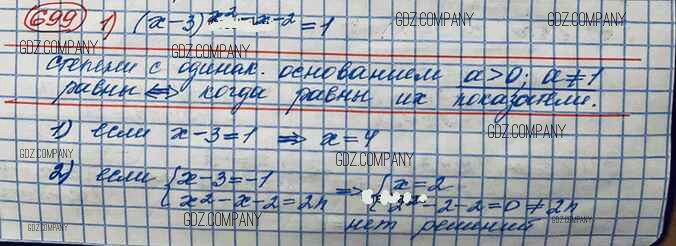 699 1) (x-3)^x²-x-2 = 1
GDZ.COMPANY GDZ.COMPANY
GDZ.COMPANY GDZ.COMPANY
степени с одинак. основанием a>0; a≠1
равны ⟺ когда равны их показатели.
GDZ.COMPANY GDZ.COMPANY
1) если x-3=1 ⟹ x=4
GDZ.COMPANY
GDZ.COMPANY GDZ.COMPANY
2) если { x-3=-1 ⟹ { x=2
{ x²-x-2=2n { 2²-2-2=0≠2n
GDZ.COMPANY GDZ.COMPANY GDZ.COMPANY
нет решений